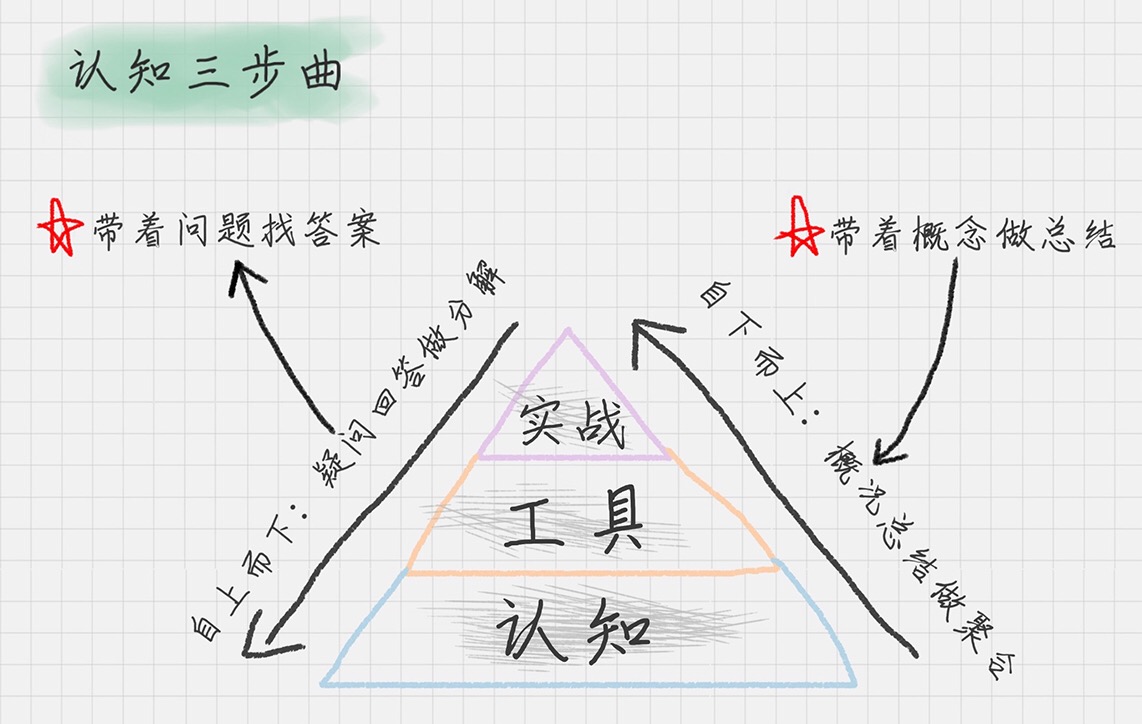 认知三步曲
带着问题找答案
带着概念做总结
自上而下：疑问回答做分解
自下而上：概况总结做聚合
实战
工具
认知